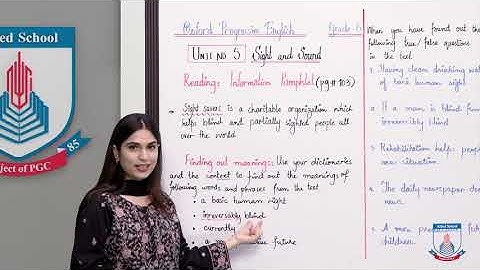 Allied School
85
Project of PGC
Oxford Progressive English
Grade-6
Unit no 5
Sight and Sound
Reading: Information Pamphlet (pg # 103)
Sight savers is a charitable organization which
helps blind and partially sighted people all
over the world
Finding out meanings: Use your dictionaries
and the context to find out the meanings of
following words and phrases from the text
• a basic human right
• irreversibly blind
• currently
• a future
When you have found out the
following true/false questions
in the text
1. Having clean drinking water
of basic human right
2. If a man is blind from
irreversibly blind
3. Rehabilitation helps people
new situation
4. The daily newspaper does
news
5. A man
children
Allied School